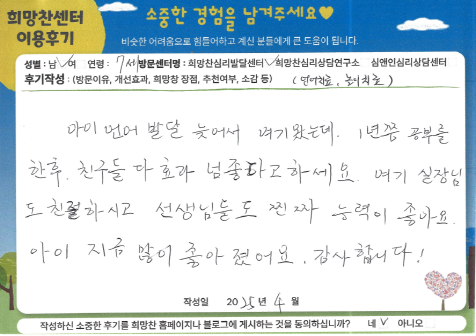 희망찬센터
이용후기
소중한 경험을 남겨주세요
비슷한 어려움으로 힘들어하고 계신 분들에게 큰 도움이 됩니다.
성별 : 남 ∨ 여 연령 : 7세 방문센터명 : 희망찬심리발달센터 ∨ 희망찬심리상담연구소 심앤인심리상담센터
후기작성 : (방문이유, 개선효과, 희망찬 장점, 추천여부, 소감 등) (언어치료, 놀이치료)
아이 언어 발달 늦어서 여기왔는데. 1년쯤 공부를
한후. 친구들 다 효과 넘좋다고하세요. 여기 실장님
도 친절하시고 선생님들도 찐짜 능력이 좋아요.
아이 지금 많이 좋아졌어요. 감사합니다!
작성일 2025년 4월
작성하신 소중한 후기를 희망찬 홈페이지나 블로그에 게시하는 것을 동의하십니까? 네 ∨ 아니오